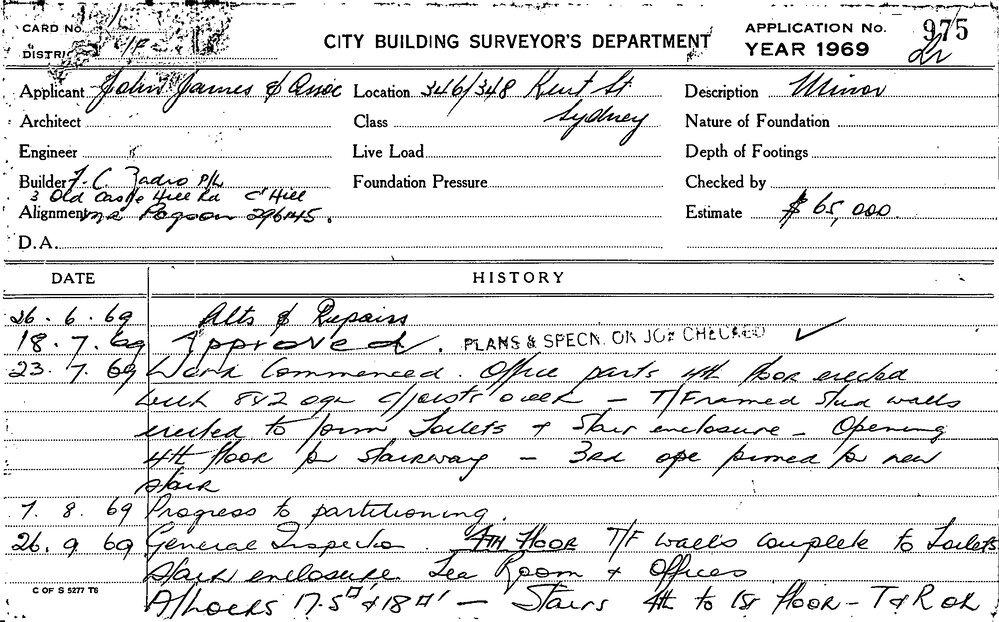 CARD No.
CITY BUILDING SURVEYOR'S DEPARTMENT
APPLICATION No. 975
DISTRI
YEAR 1969
Applicant John James & Assoc Location 346/348 Kent St Description Minor
Architect Class Sydney Nature of Foundation
Engineer Live Load Depth of Footings
Builder F. C. Zadro P/L Foundation Pressure Checked by
3 Old Castle Hill Rd C' Hill
Alignment Mr Pogson 296145. Estimate $65,000.
D.A.
DATE HISTORY
26.6.69 Alts & Repairs
18.7.69 Approved. PLANS & SPECN. ON JOB CHECKED ✓
23.7.69 Work Commenced. Office parts 4th floor erected
with 8x2 c/joists over – T/Framed stud walls
erected to form Toilets & Stair enclosure – Opening
4th floor for stairway – 3rd ope formed for new
stair
7.8.69 Progress to partitioning.
26.9.69 General Inspection. 4TH FLOOR T/F walls complete to Toilets
stair enclosure. Tea Room & Offices
A/Locks 17.5 & 18 – Stairs 4th to 1st floor – T & R ok
C OF S 5277 T6